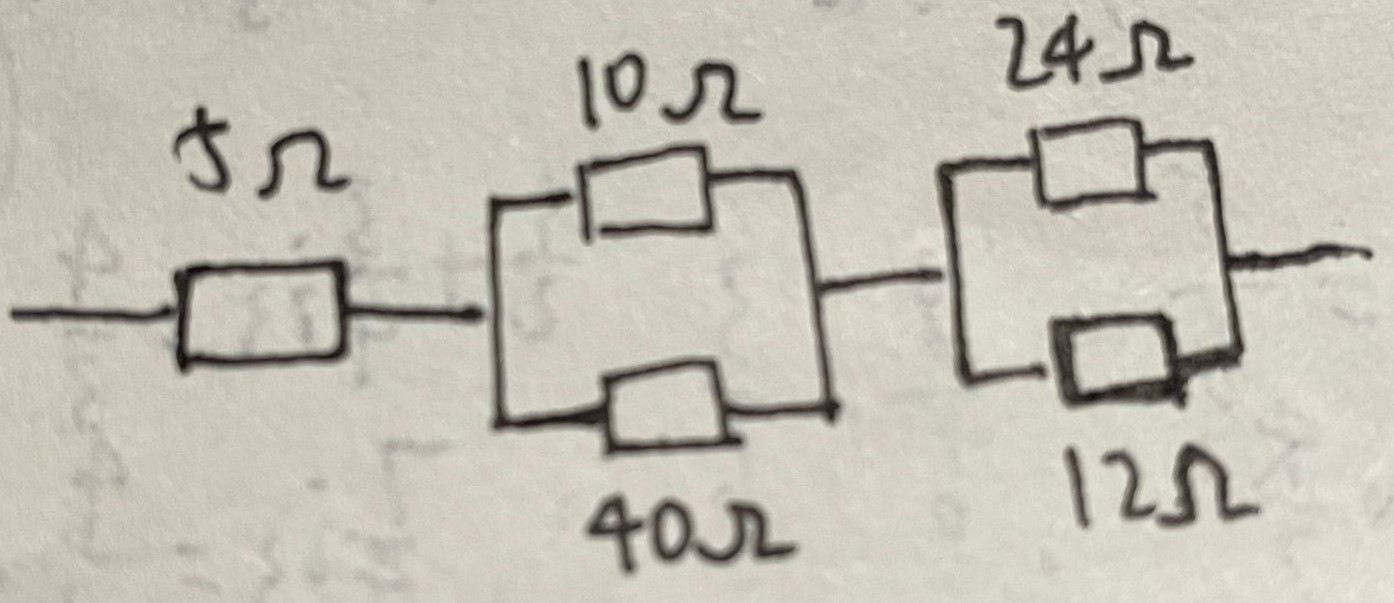 5Ω
10Ω
40Ω
24Ω
12Ω